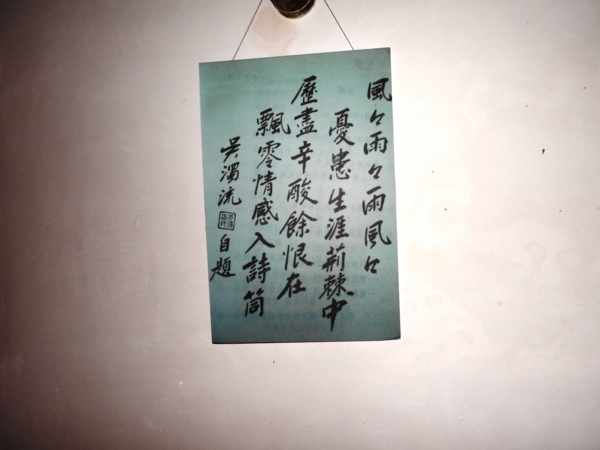 風々雨々雨風々
憂患生涯荊棘中
歷盡辛酸餘恨在
飄零情感入詩筒
吳濁流 自題